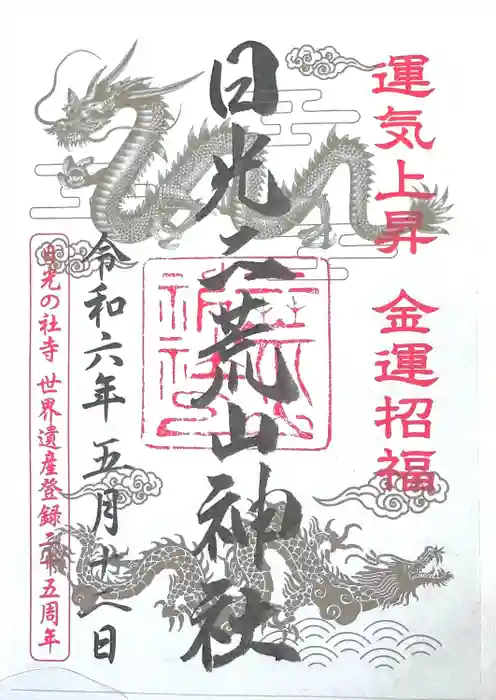 運気上昇 金運招福
日光二荒山神社
令和六年五月十二日
日光の社寺 世界遺産登録二十五周年